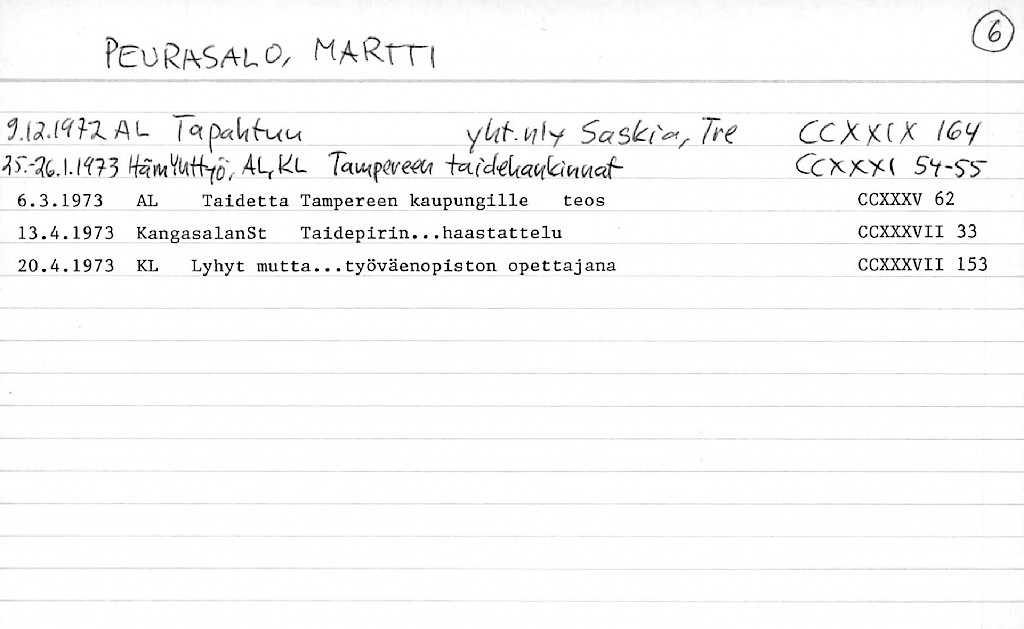 6
PEURASALO, MARTTI
9.12.1972 AL Tapahtuu yht.nly Saskia, Tre CCXXIX 164
25.-26.1.1973 HämYhttyö, AL, KL Tampereen taidehankinnat CCXXXI 54-55
6.3.1973 AL Taidetta Tampereen kaupungille teos CCXXXV 62
13.4.1973 KangasalanSt Taidepirin...haastattelu CCXXXVII 33
20.4.1973 KL Lyhyt mutta...työväenopiston opettajana CCXXXVII 153